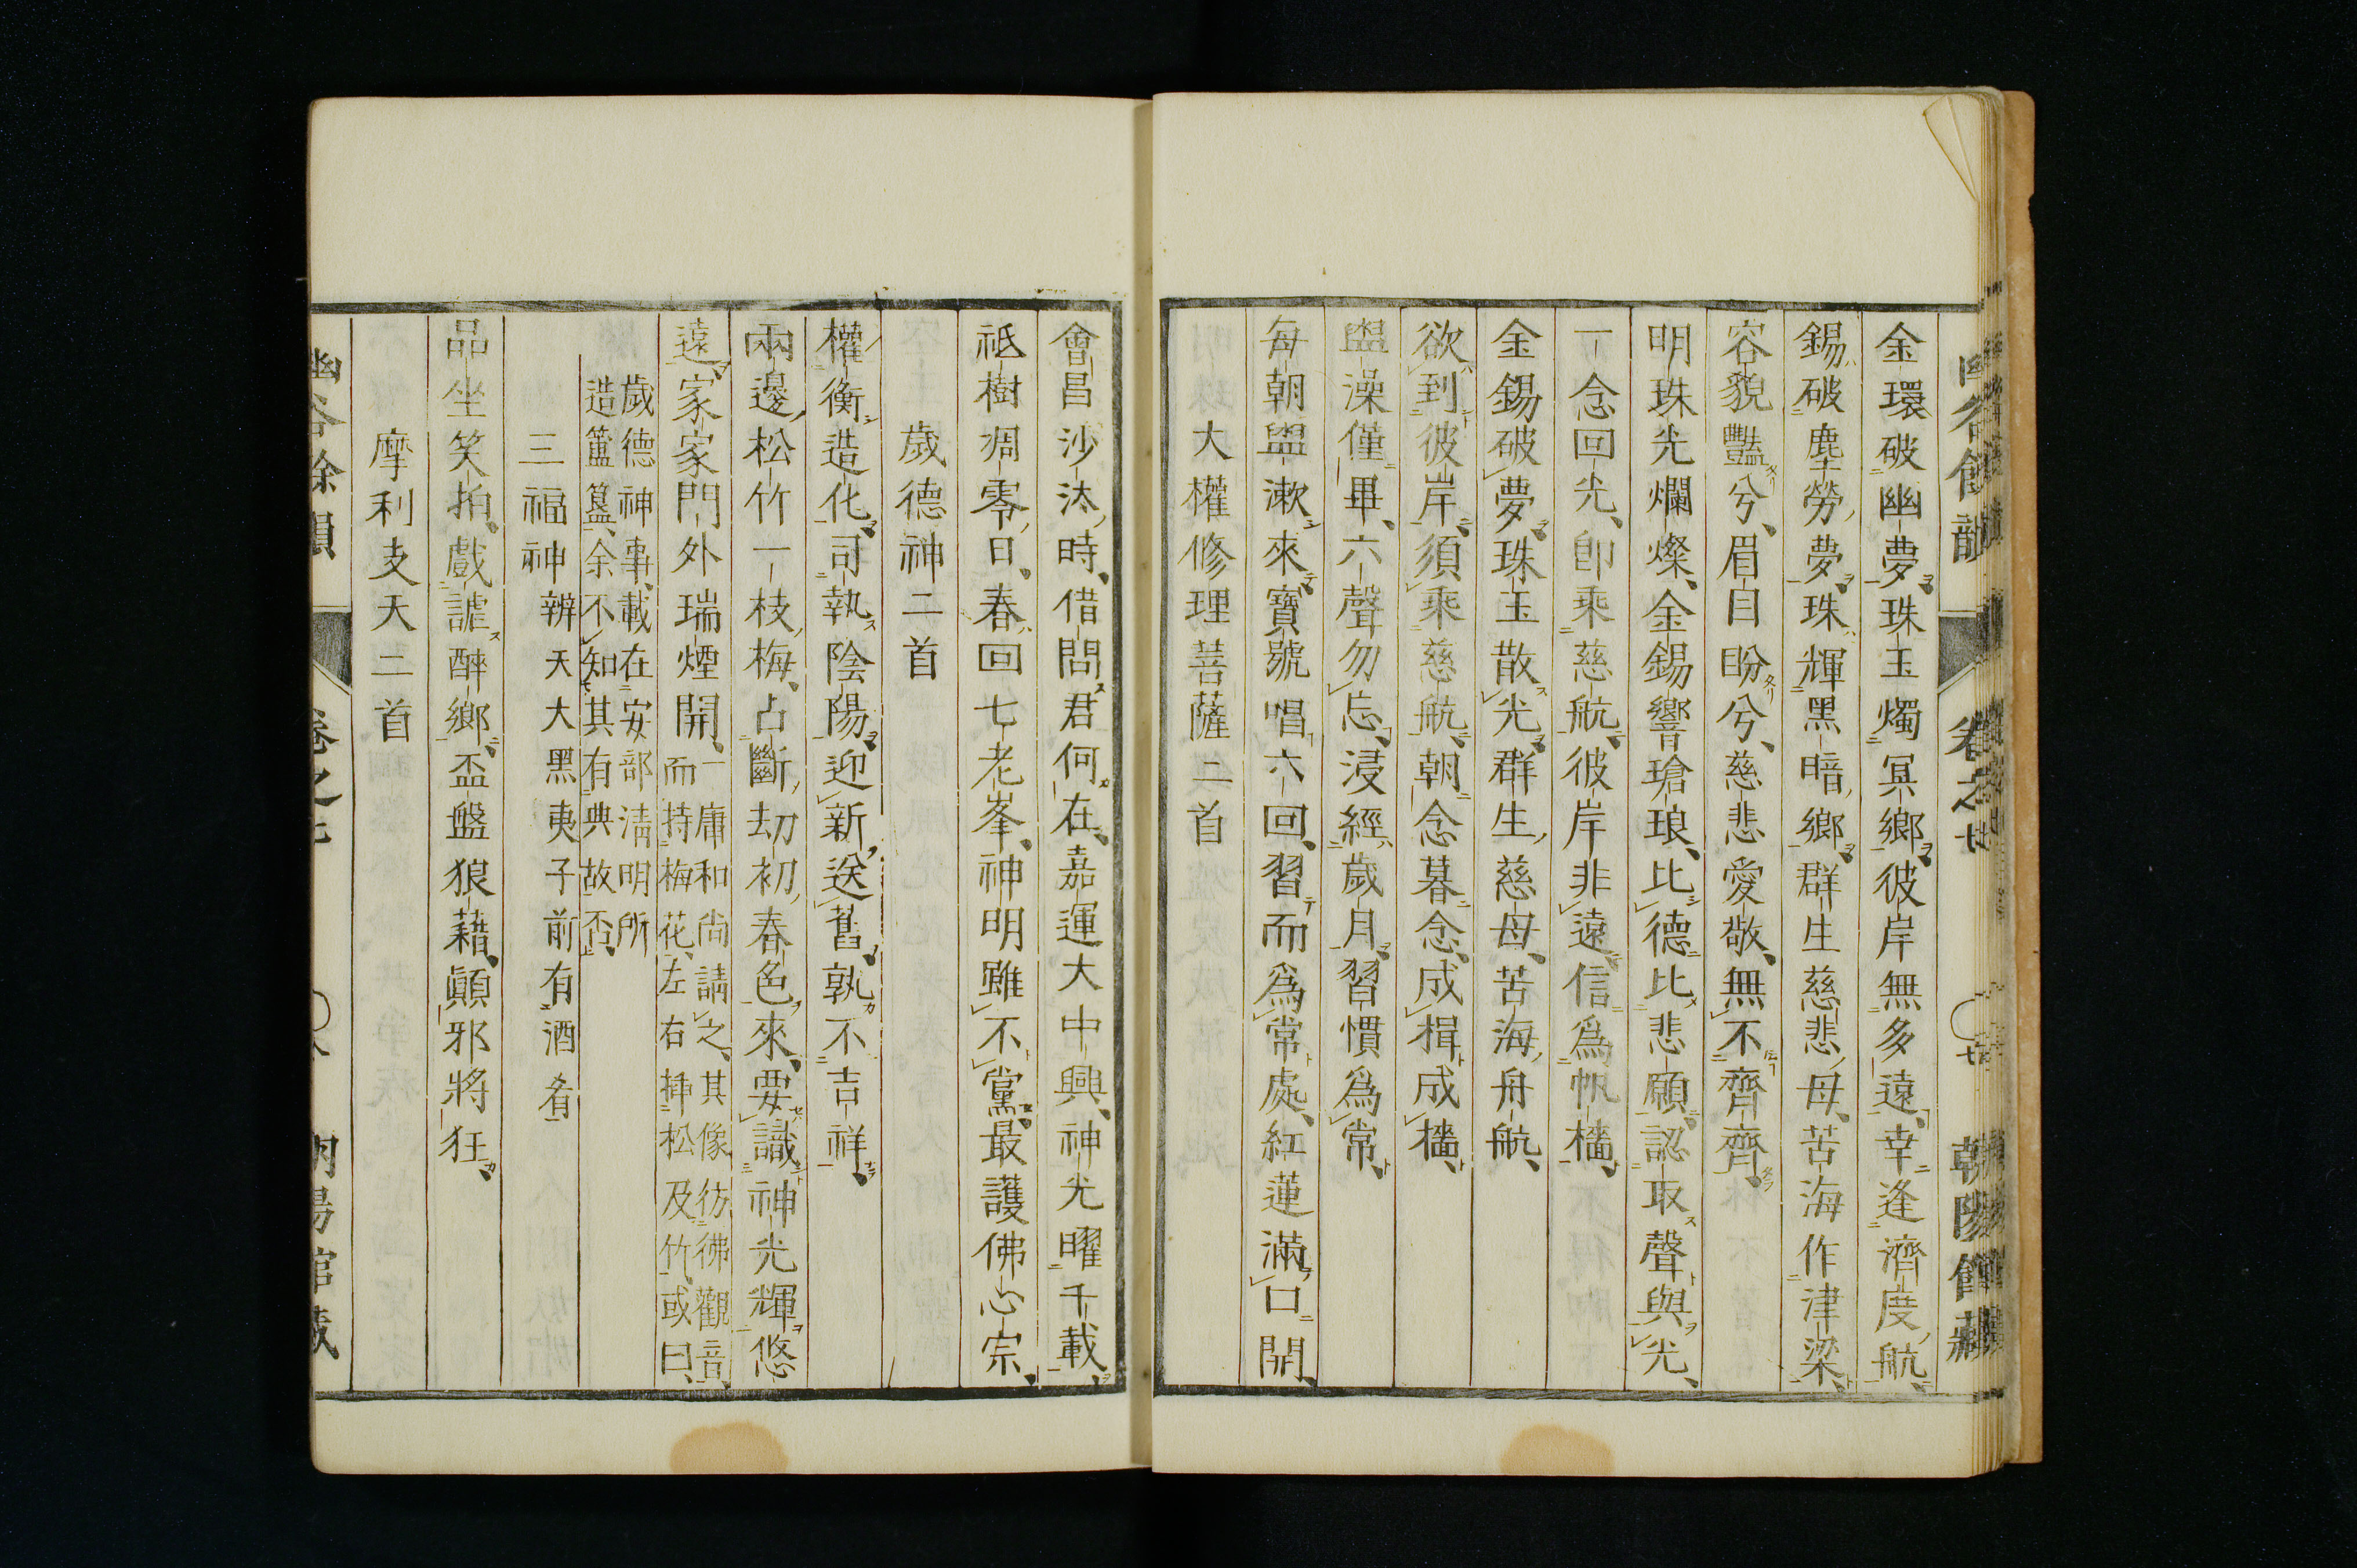 金環破幽夢珠玉燭冥鄉彼岸無多遠幸逢濟度航
錫破塵勞夢珠輝黑暗鄉群生慈悲母苦海作津梁
容貌豔兮眉目盼兮慈悲愛敬無不齊齊
明珠光爛燦金錫響瑲琅比德比悲願認取聲與光
一念回光即乘慈航彼岸非遠信爲帆檣
金錫破夢珠玉散光群生慈母苦海舟航
欲到彼岸須乘慈航朝念暮念成楫成檣
盥澡僅畢六聲勿忘浸經歲月習慣爲常
每朝盥漱來寶號唱六回習而爲常處紅蓮滿口開
大權修理菩薩二首
會昌沙汰時借問君何在嘉運大中興神光曜千載
祇樹凋零日春回七老峯神明雖不黨最護佛心宗
歲德神二首
權衡造化司執陰陽迎新送舊孰不吉祥
兩邊松竹一枝梅占斷劫初春色來要識神光輝悠
遠家家門外瑞煙開一庸和尚請之其像彷彿觀音
而持梅花左右挿松及竹或曰
歲德神事載在安部清明所
造簠簋余不知其有典故否
三福神辨天大黑夷子前有酒肴
品坐笑拍戲謔醉鄉盃盤狼藉顚邪將狂
摩利支天二首
幽谷餘韻 卷之七 朝陽館藏